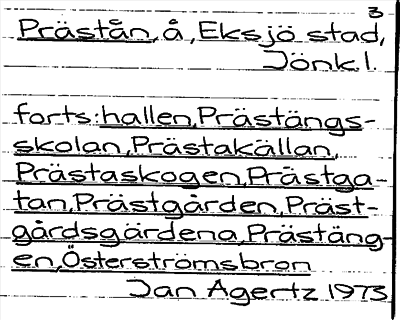 3
Prästån, å, Eksjö stad,
Jönk.l.
forts: hallen, Prästängs-
skolan, Prästakällan,
Prästaskogen, Prästga-
tan, Prästgården, Präst-
gårdsgärdena, Prästäng-
en, Österströmsbron
Jan Agertz 1973